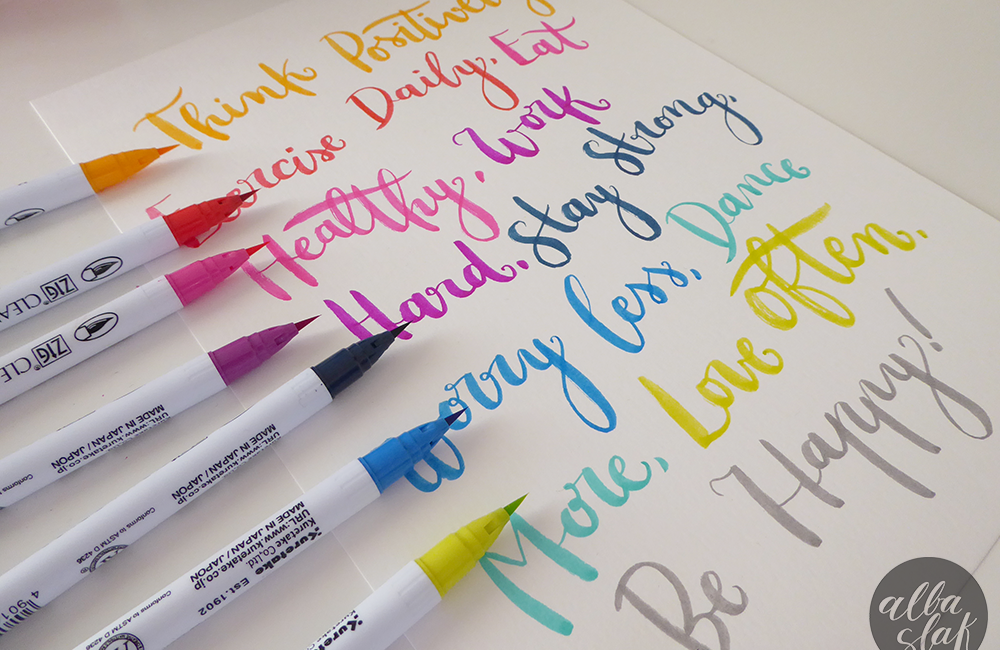 Think Positively
Exercise Daily. Eat
Healthy. Work
Hard. Stay Strong.
Worry less. Dance
More. Love often.
Be Happy!
ZIG CLEA
ZIG CLE
URL:www.kuretake.co.jp
MADE IN JAPAN / JAPON
Conforms to ASTM D 4236
URL:www.kuretake.co.jp
MADE IN JAPAN / JAPON
Conforms to ASTM D 4236
4901
Kuretake Co.,Ltd. Est.1902
URL:www.kuretake.co.jp
MADE IN JAPAN / JAPON
Conforms to ASTM D 4236
Kuretake
alba
slak